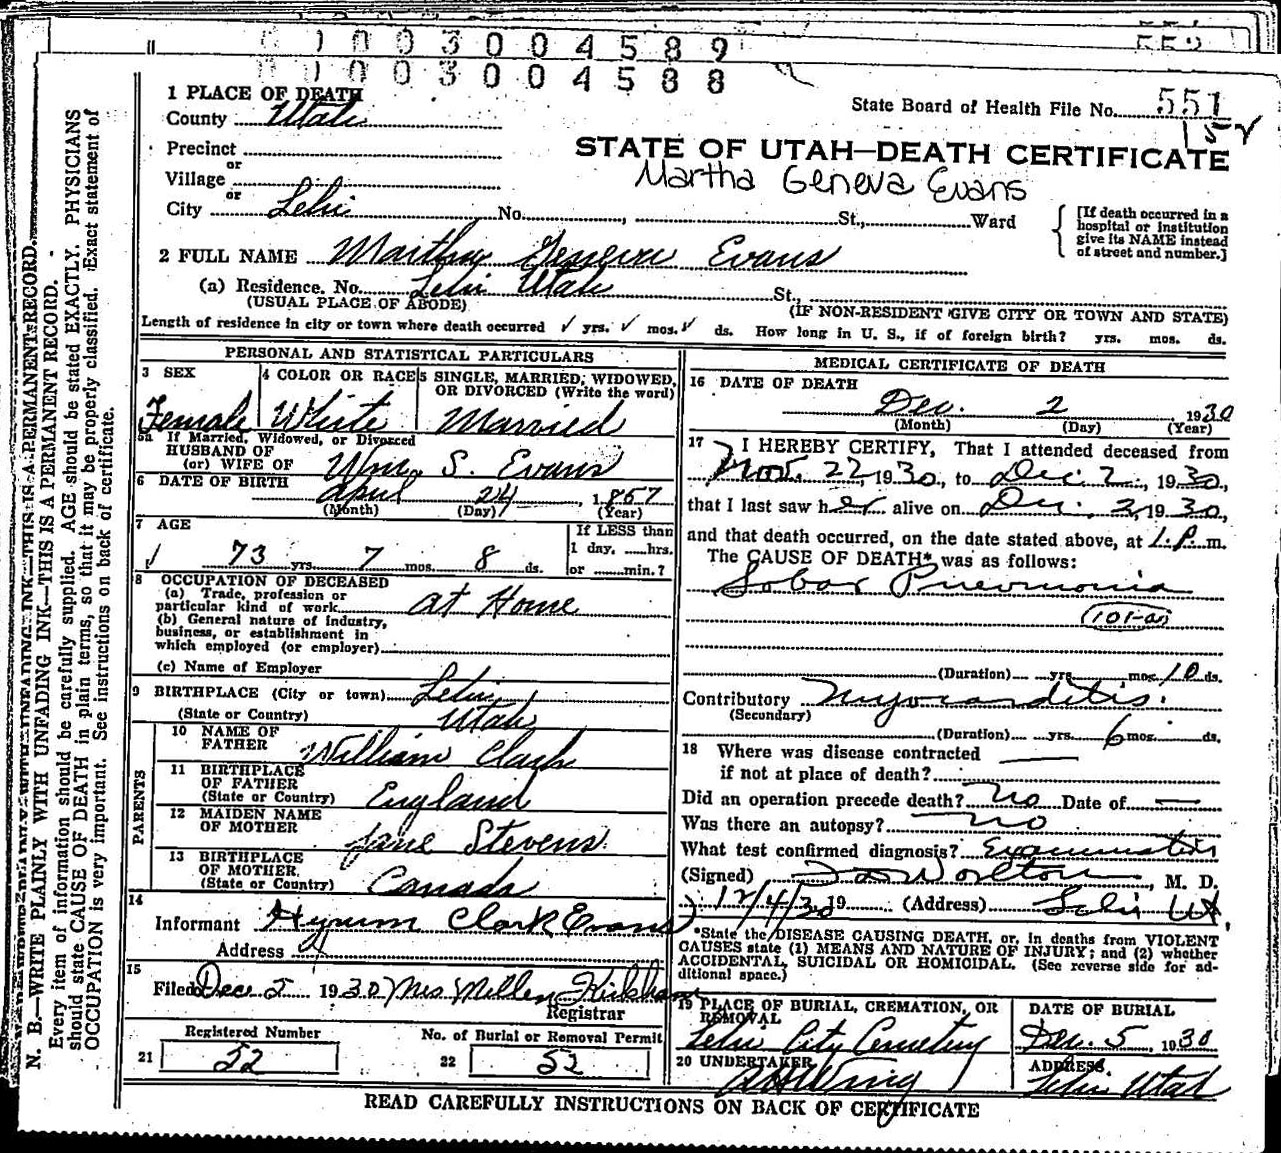 551
552
003004589
003004588
1 PLACE OF DEATH
County Utah
State Board of Health File No. 551
152
Precinct
or
Village
or
City Lehi No. , St., Ward
STATE OF UTAH—DEATH CERTIFICATE
Martha Geneva Evans
[If death occurred in a
hospital or institution
give its NAME instead
of street and number.]
2 FULL NAME Martha Geneva Evans
(a) Residence. No. Lehi Utah St.,
(USUAL PLACE OF ABODE) (IF NON-RESIDENT GIVE CITY OR TOWN AND STATE)
Length of residence in city or town where death occurred ✓ yrs. ✓ mos. ✓ ds. How long in U. S., if of foreign birth? yrs. mos. ds.
PERSONAL AND STATISTICAL PARTICULARS
3 SEX
Female
4 COLOR OR RACE
White
5 SINGLE, MARRIED, WIDOWED,
OR DIVORCED (Write the word)
Married
5a If Married, Widowed, or Divorced
HUSBAND OF
(or) WIFE OF Wm. S. Evans
6 DATE OF BIRTH April 24, 1857
(Month) (Day) (Year)
7 AGE
73 yrs. 7 mos. 8 ds.
If LESS than
1 day, ......hrs.
or ......min.?
8 OCCUPATION OF DECEASED
(a) Trade, profession or
particular kind of work At Home
(b) General nature of industry,
business, or establishment in
which employed (or employer)
(c) Name of Employer
9 BIRTHPLACE (City or town) Lehi
(State or Country) Utah
PARENTS
10 NAME OF
FATHER William Clark
11 BIRTHPLACE
OF FATHER
(State or Country) England
12 MAIDEN NAME
OF MOTHER Jane Stevens
13 BIRTHPLACE
OF MOTHER
(State or Country) Canada
14
Informant Hyrum Clark Evans
Address
15
Filed Dec 5 1930 Mrs Mellen Kirkham
Registrar
Registered Number
21 52
No. of Burial or Removal Permit
22 52
MEDICAL CERTIFICATE OF DEATH
16 DATE OF DEATH
Dec. 2, 1930
(Month) (Day) (Year)
17 I HEREBY CERTIFY, That I attended deceased from
Nov. 22, 1930, to Dec 2, 1930,
that I last saw her alive on Dec. 2, 1930,
and that death occurred, on the date stated above, at 1 P. m.
The CAUSE OF DEATH* was as follows:
Lobar Pneumonia
101-a
(Duration) yrs. mos. 10 ds.
Contributory Myocarditis.
(Secondary)
(Duration) yrs. 6 mos. ds.
18 Where was disease contracted
if not at place of death?
Did an operation precede death? No Date of —
Was there an autopsy? No
What test confirmed diagnosis? Examination
(Signed) Worlton, M. D.
12/4/30 19 (Address) Lehi Ut,
*State the DISEASE CAUSING DEATH, or, in deaths from VIOLENT
CAUSES state (1) MEANS AND NATURE OF INJURY; and (2) whether
ACCIDENTAL, SUICIDAL OR HOMICIDAL. (See reverse side for ad-
ditional space.)
19 PLACE OF BURIAL, CREMATION, OR
REMOVAL
Lehi City Cemetery
DATE OF BURIAL
Dec. 5, 1930
20 UNDERTAKER
Wing
ADDRESS
Lehi Utah
READ CAREFULLY INSTRUCTIONS ON BACK OF CERTIFICATE
N. B.—WRITE PLAINLY WITH UNFADING INK—THIS IS A PERMANENT RECORD.
Every item of information should be carefully supplied. AGE should be stated EXACTLY. PHYSICIANS
should state CAUSE OF DEATH in plain terms, so that it may be properly classified. Exact statement of
OCCUPATION is very important. See instructions on back of certificate.